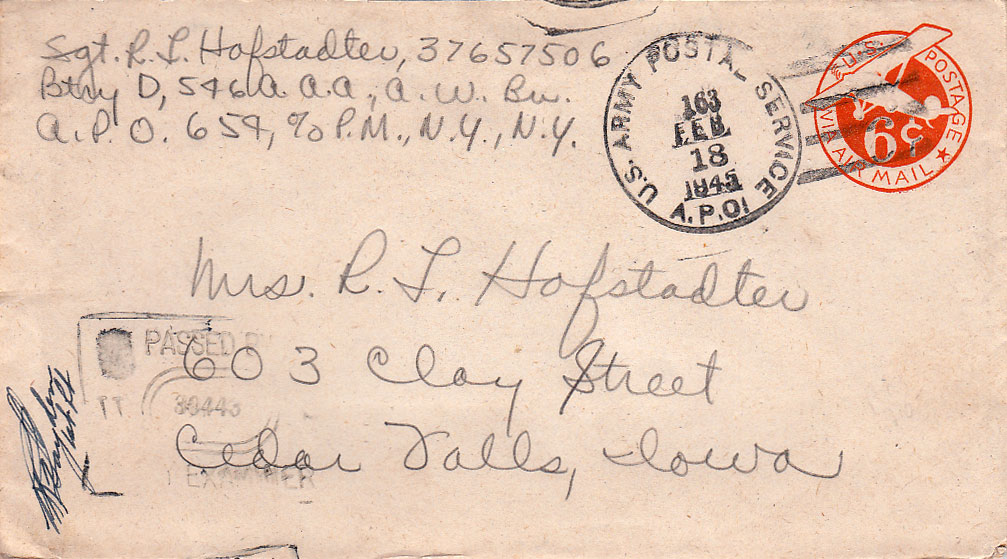 Sgt. R. L. Hofstadter, 37657506
Btry D, 546 A.A.A., A. W. Bn.
A.P.O. 654, % P.M., N.Y., N.Y.
U.S. ARMY POSTAL SERVICE
163
FEB
18
1945
A.P.O.
U.S. POSTAGE
6¢
VIA AIR MAIL
Mrs. R. L. Hofstadter
603 Clay Street
Cedar Falls, Iowa
PASSED BY
EXAMINER